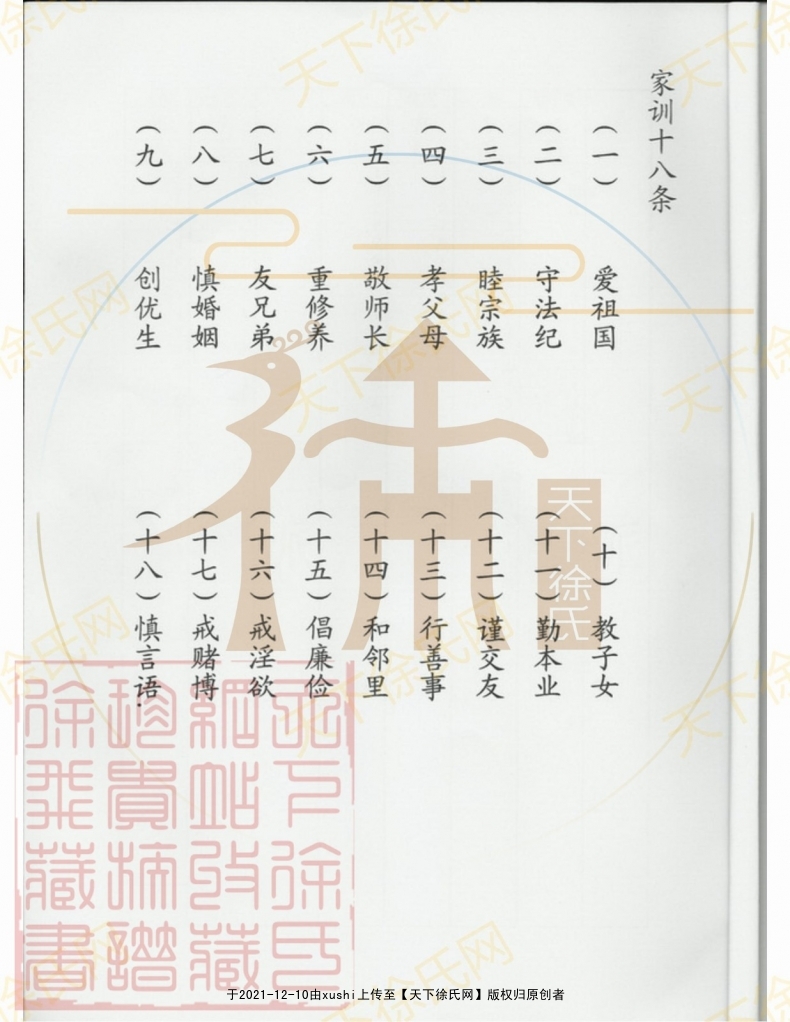 家训十八条
（一） 爱祖国
（二） 守法纪
（三） 睦宗族
（四） 孝父母
（五） 敬师长
（六） 重修养
（七） 友兄弟
（八） 慎婚姻
（九） 创优生
（十） 教子女
（十一） 勤本业
（十二） 谨交友
（十三） 行善事
（十四） 和邻里
（十五） 倡廉俭
（十六） 戒淫欲
（十七） 戒赌博
（十八） 慎言语.
天下徐氏
天下徐氏网
于2021-12-10由xushi上传至【天下徐氏网】版权归原创者